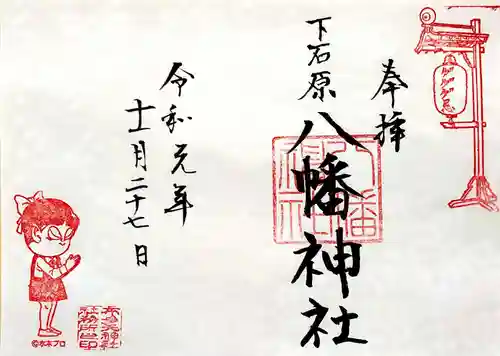 奉拝
下石原
八幡神社
令和元年
十二月二十七日
©水木プロ